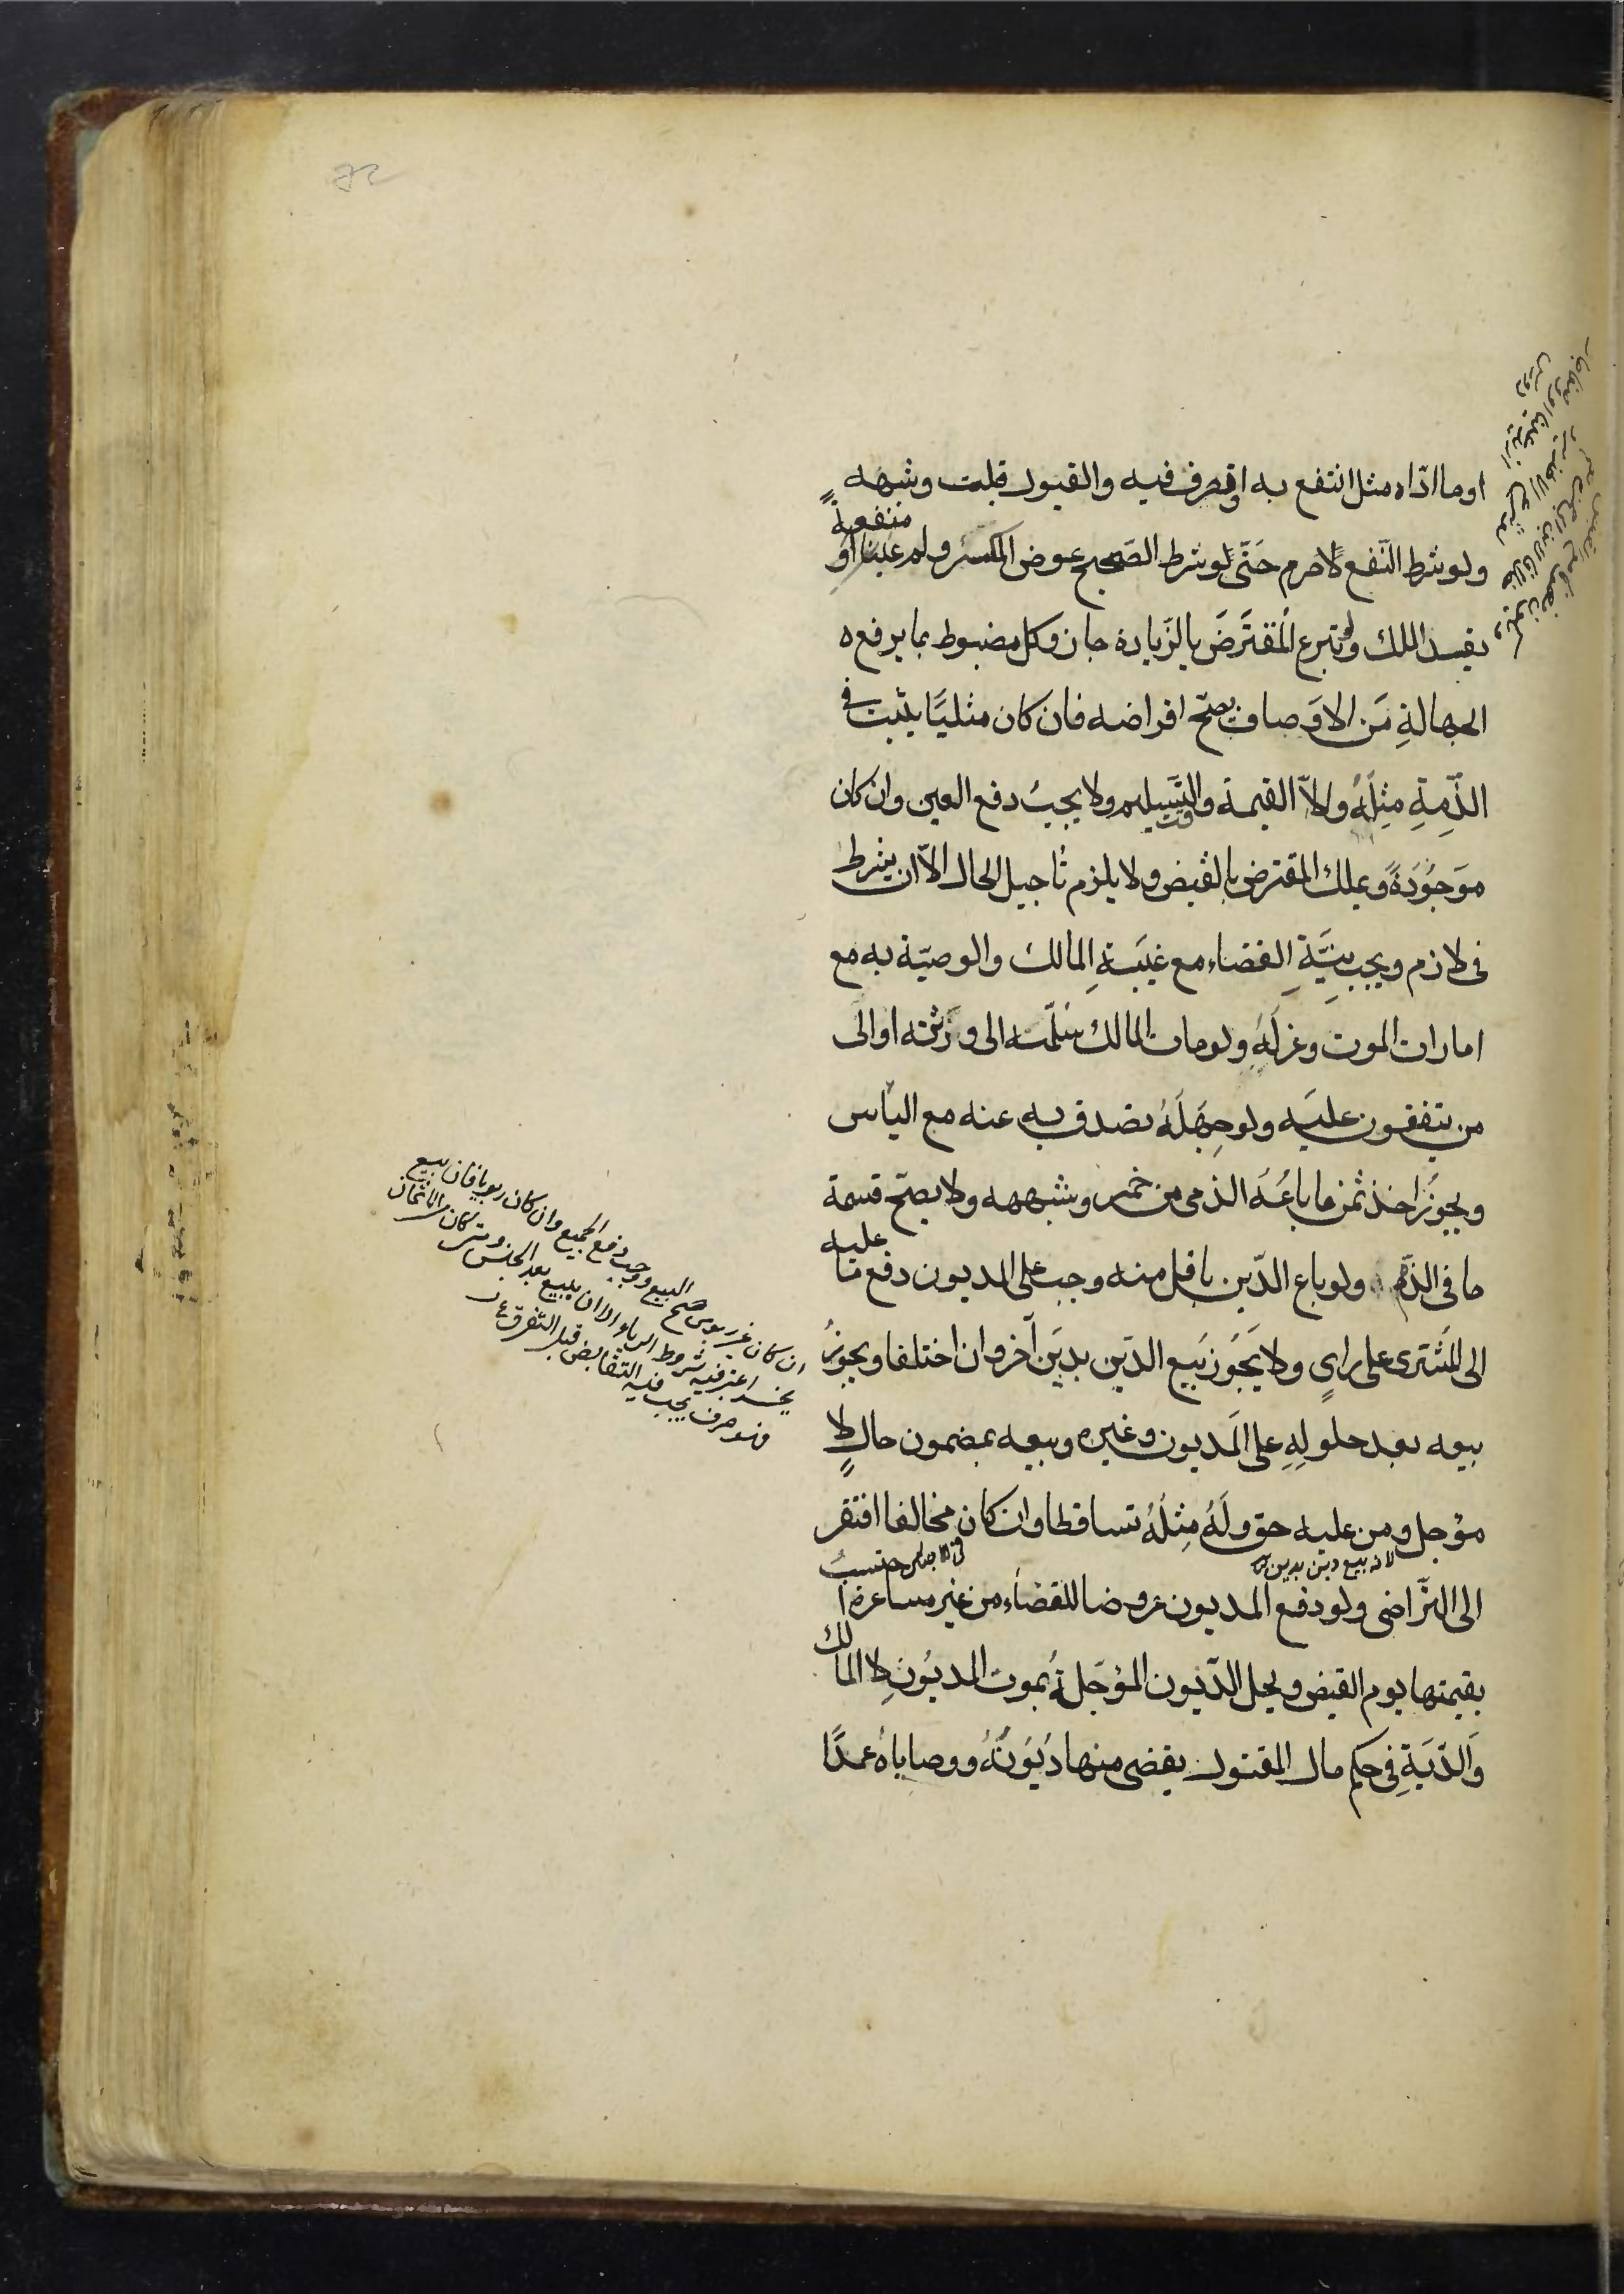 او ما ادّاه مثل انتفع به او تصرف فيه والقبول قبلت وشبهه
ولو شرط النّفع لا حرم حَتّى لو شرط الصّحيح عوض المكسر ولم عينا او
منفعةً
يفيد الملك ولو تبرع المُقتَرضَ بالزّيادة جاز وكل مضبوط بما يرفع ه
الجهالةِ مَن الاوَصاف يصحّ اقراضه فان كان مثليَّا يثبت فى
الذّمِةِ مِثِلُهُ والاّ القيمة وقت التَّسيليم ولا يجبُ دفع العين وان كان
موَجوُدَةً ويملك المقترض بالقبض ولا يلزم تاجيل الحال الاّ ان يشرط
فى لازم ويجب بِنيَّةِ القضاء مع غيَبَةِ المالك والوصيّة به مع
امارات الموت وعزلَهِ ولو مات المالك سُلّمت الى ورَثته او الى
من يتفقون عليَه ولو جِهَلَهُ تصدق به عنه مع اليأس
ويجوُزَ اخذ ثمن ما باعُهَ الذمى من خمر وشبهه ولا يصحّ قسمة
ما فى الذّمم ولو باع الدّين باقل منه وجب على المديون دفع ما
عليه
الى المُشترى على رايٍ ولا يَجُوز بَيع الديّن بديَن آخر وان اختلفا ويجوزُ
بيعه بعد حلولِهِ على المَديون وغيره وبيعه بمضمون حالٍ لا
مؤجل ومن عليه حق ولَهُ مِثلُهُ تساقطا وان كان مخالفا افتقر
لانه بيع دين بدين
الى التّراضى ولو دفع المديون عروضا للقضاء من غير مساعرة ا
حتسبُ
بقيمتها يوم القبض ويحل الدّيون المؤجّلةُ بموت المديُونِ لا المالك
وَالدّيَةِ فى حكم مال المقتول يقضى منها دُيَوُنهُ ووصاياهُ عمدًا
ان كان غير ربوى صح البيع ووجب دفع الجميع وان كان ربويا فان بيع
بجنسه اعتبر فيه شروط الرباء الا ان يبيع بغير الجنس ومتى كان من الاثمان
فهو صرف يجب فيه التقابض قبل التفرق